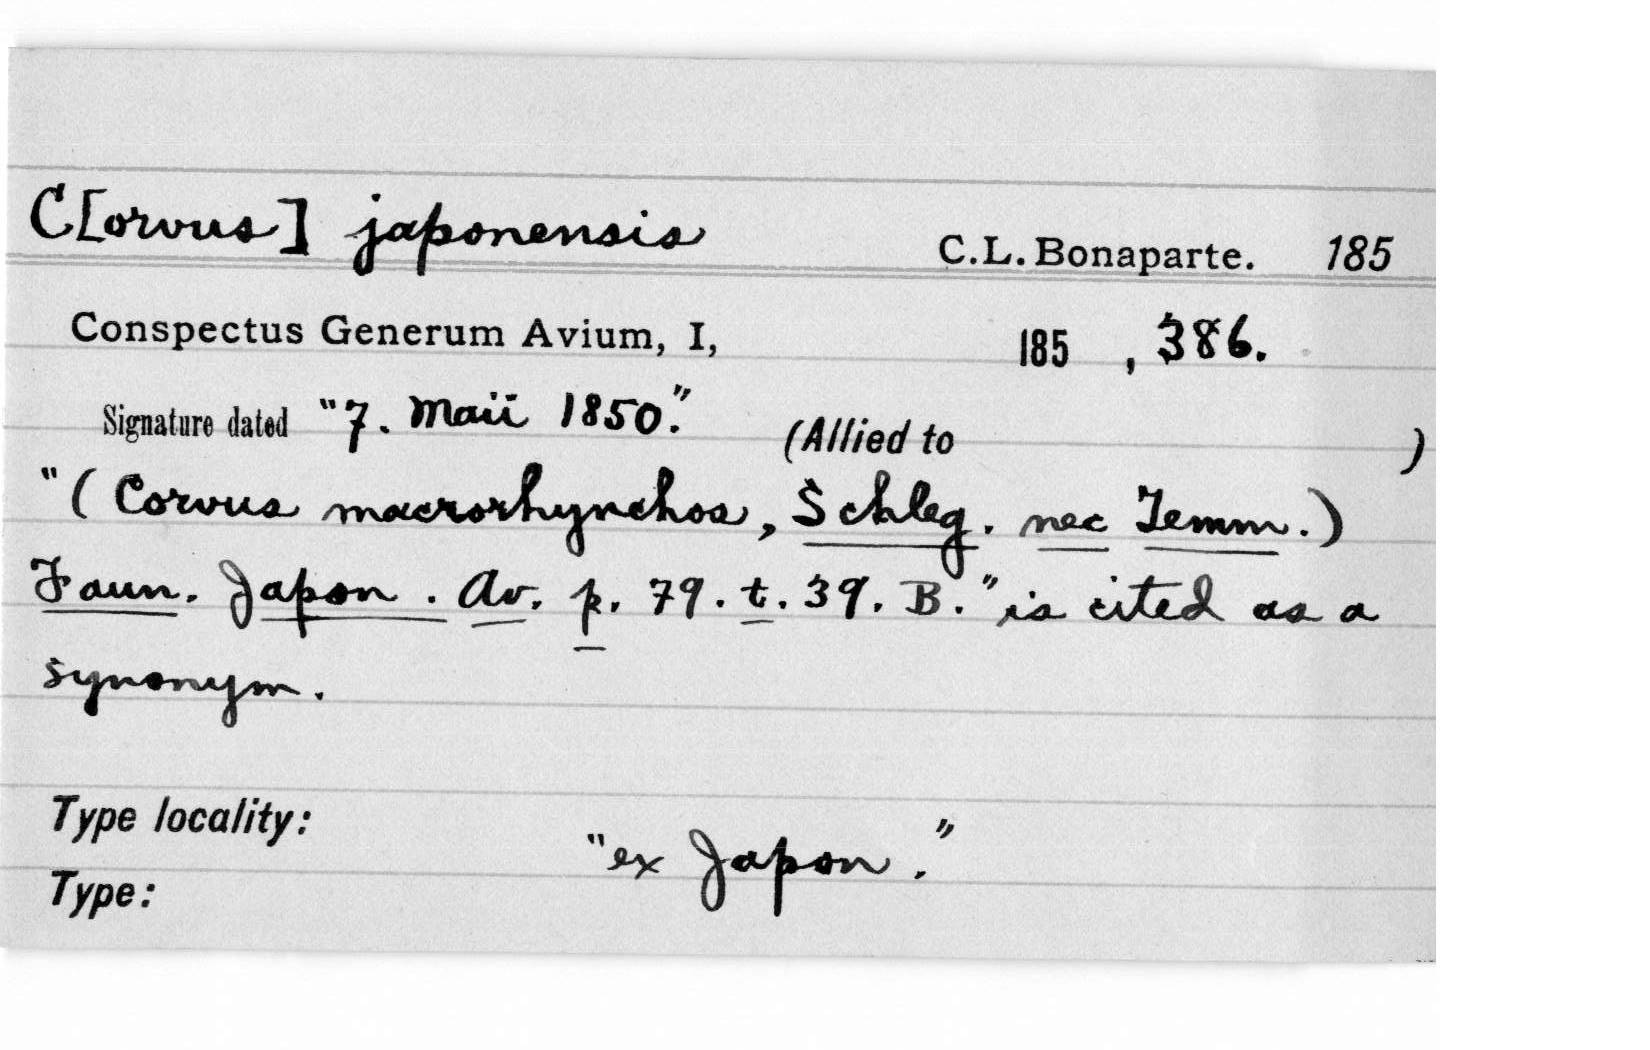 C[orvus] japonensis C.L. Bonaparte. 185
Conspectus Generum Avium, I, 185 , 386.
Signature dated "7. Maii 1850." (Allied to )
"(Corvus macrorhynchos, Schleg. nec Temm.)
Faun. Japon. Av. p. 79. t. 39. B." is cited as a
synonym.
Type locality: "ex Japon."
Type: